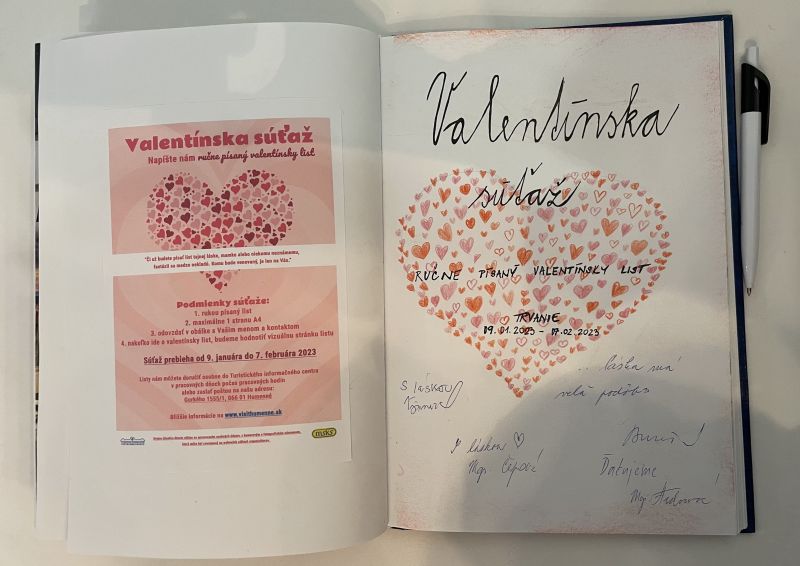 Valentínska súťaž
Napíšte nám ručne písaný valentínsky list
"Či už budete písať list tajnej láske, mamke alebo niekomu neznámemu,
fantázii sa medze nekladú. Komu bude venovaný, je len na Vás."
Podmienky súťaže:
1. rukou písaný list
2. maximálne 1 stranu A4
3. odovzdať v obálke s Vaším menom a kontaktom
4. nakoľko ide o valentínsky list, budeme hodnotiť vizuálnu stránku listu
Súťaž prebieha od 9. januára do 7. februára 2023
Listy nám môžete doručiť osobne do Turistického informačného centra
v pracovných dňoch počas pracovných hodín
alebo zaslať poštou na našu adresu:
Gorkého 1555/1, 066 01 Humenné
Bližšie informácie na www.visithumenne.sk
msks
Valentínska
súťaž
RUČNE PÍSANÝ VALENTÍNSKY LIST
TRVANIE
09.01.2023 - 07.02.2023
... láska má
veľa podôb
S láskou
S láskou ♡
Mgr.
Ďakujeme
Mgr.